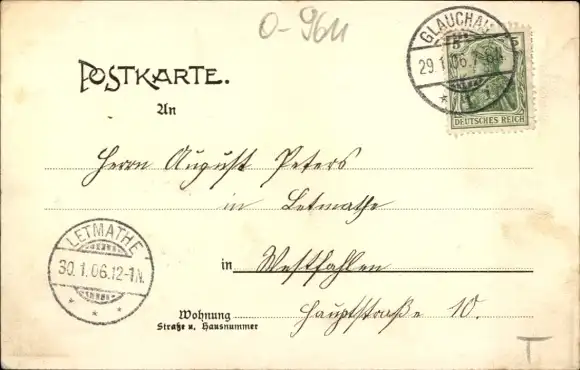 0-9611
GLAUCHAU
29.1.06.7-8N.
5 5
DEUTSCHES REICH
POSTKARTE.
An
Herrn August Peters
in Letmathe
LETMATHE
30.1.06.12-1N.
in Westfahlen
Wohnung Hauptstraße 10.
Straße u. Hausnummer
T